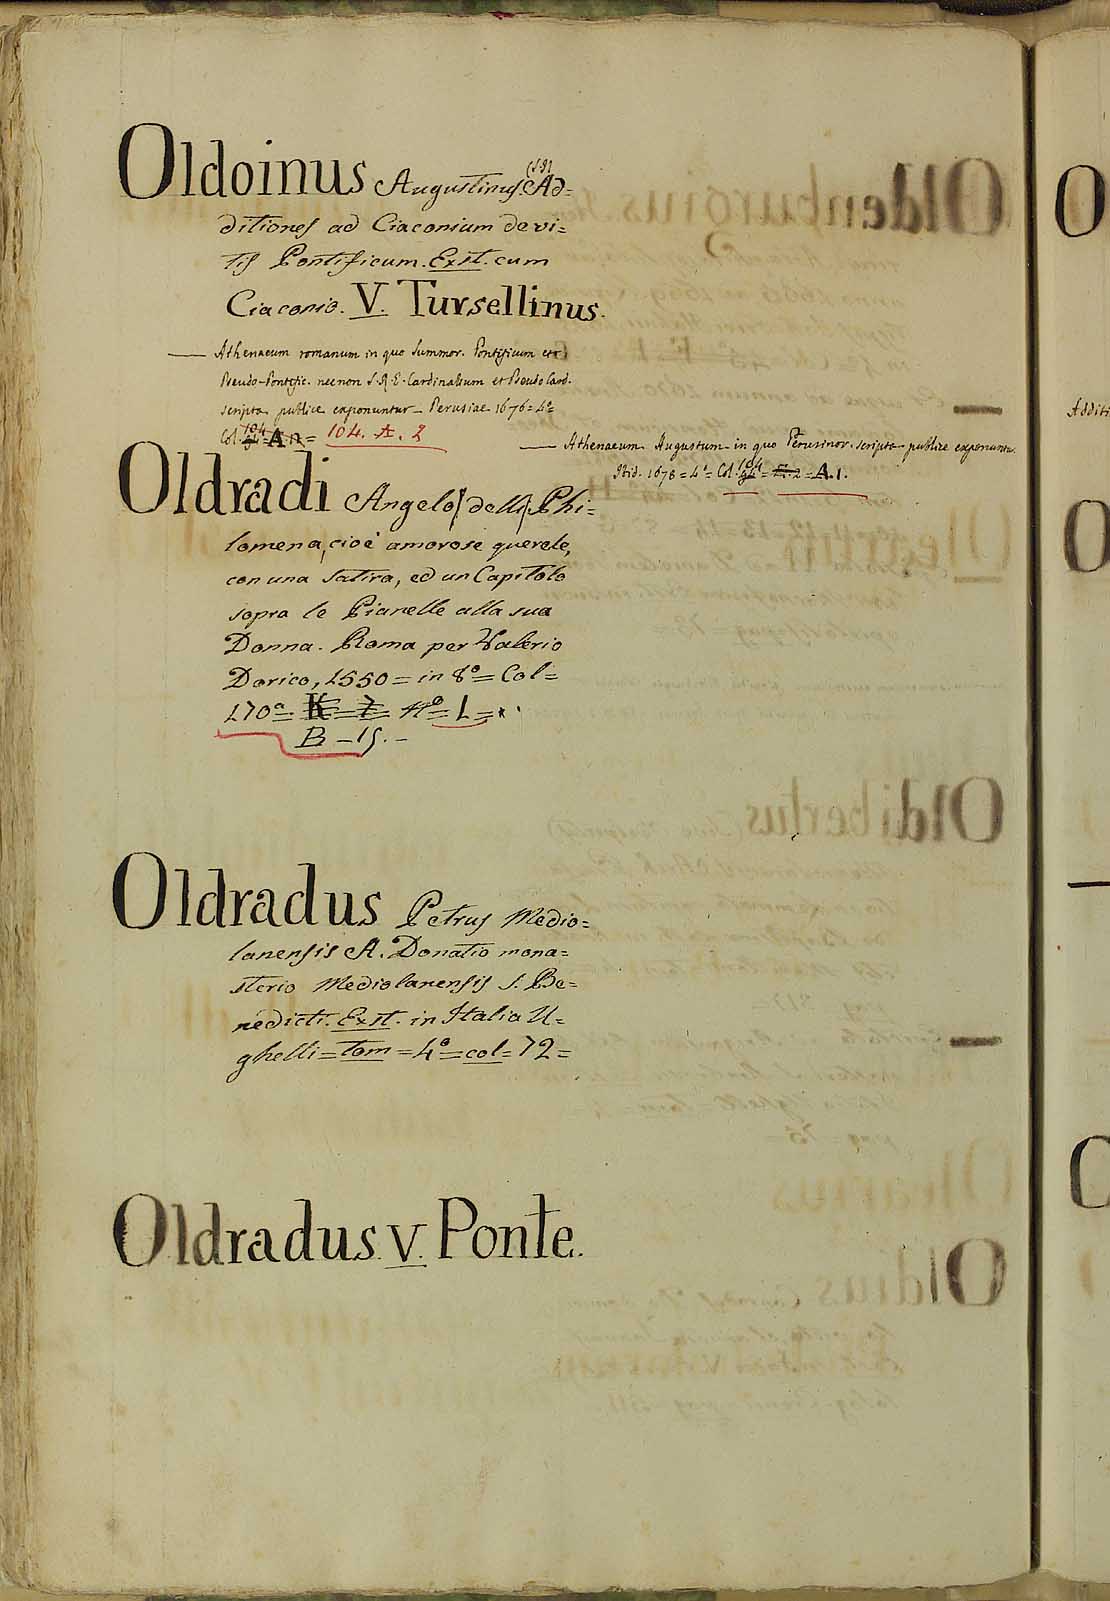 Oldoinus Augustinus (S.I.) Ad=
ditiones ad Ciaconium de vi=
tis Pontificum. Exst. cum
Ciaconio. V. Tursellinus.
— Athenaeum romanum in quo Summor. Pontificum ect)
Pseudo-Pontific. necnon S. R. E. Cardinalium et Pseudo Card.
scripta publice exponuntur — Perusiae 1676 = 4º =
Col. 104 = A = 104. A. 2
— Athenaeum Augustum in quo Perusinor. scripta publice exponuntur.
Ibid. 1678 = 4º = Col. 104 = A. 1.
Oldradi Angelo (delli) Phi=
lomena, cioè amorose querele,
con una Satira, ed un Capitolo
sopra le Pianelle alla sua
Donna. Roma per Valerio
Dorico, 1550 = in 8º = Col =
170ª = K = 7 = nº = L =
B — 15. —
Oldradus Petrus Medio=
lanensis A. Donatio mona=
sterio Mediolanensis S. Be=
nedicti. Exst. in Italia U=
ghelli = tom = 4º = col = 72 =
Oldradus. V. Ponte.